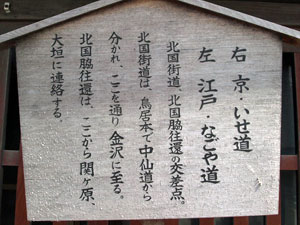 右 京・いせ道
左 江戸・なごや道
北国街道、北国脇往還の交差点。
北国街道は、鳥居本で中仙道から
分かれ、ここを通り金沢に至る。
北国脇往還は、ここから関ヶ原、
大垣に連絡する。